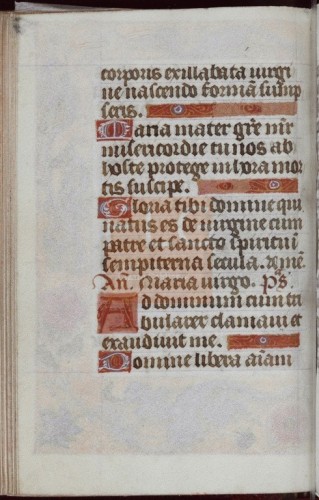 corporis ex illabata uirgi
ne nascendo formā sump
seris.
Maria mater grē mr̄
misericordie tu nos ab
hoste protege in hora mor
tis suscipe.
Gloria tibi domine qui
natus es de uirgine cum
patre et sancto spiritu in
sempiterna secula. amē.
Añ. Maria uirgo. Ps̄.
Ad dominum cum tri
bularer clamaui et
exaudiuit me.
Domine libera aīam